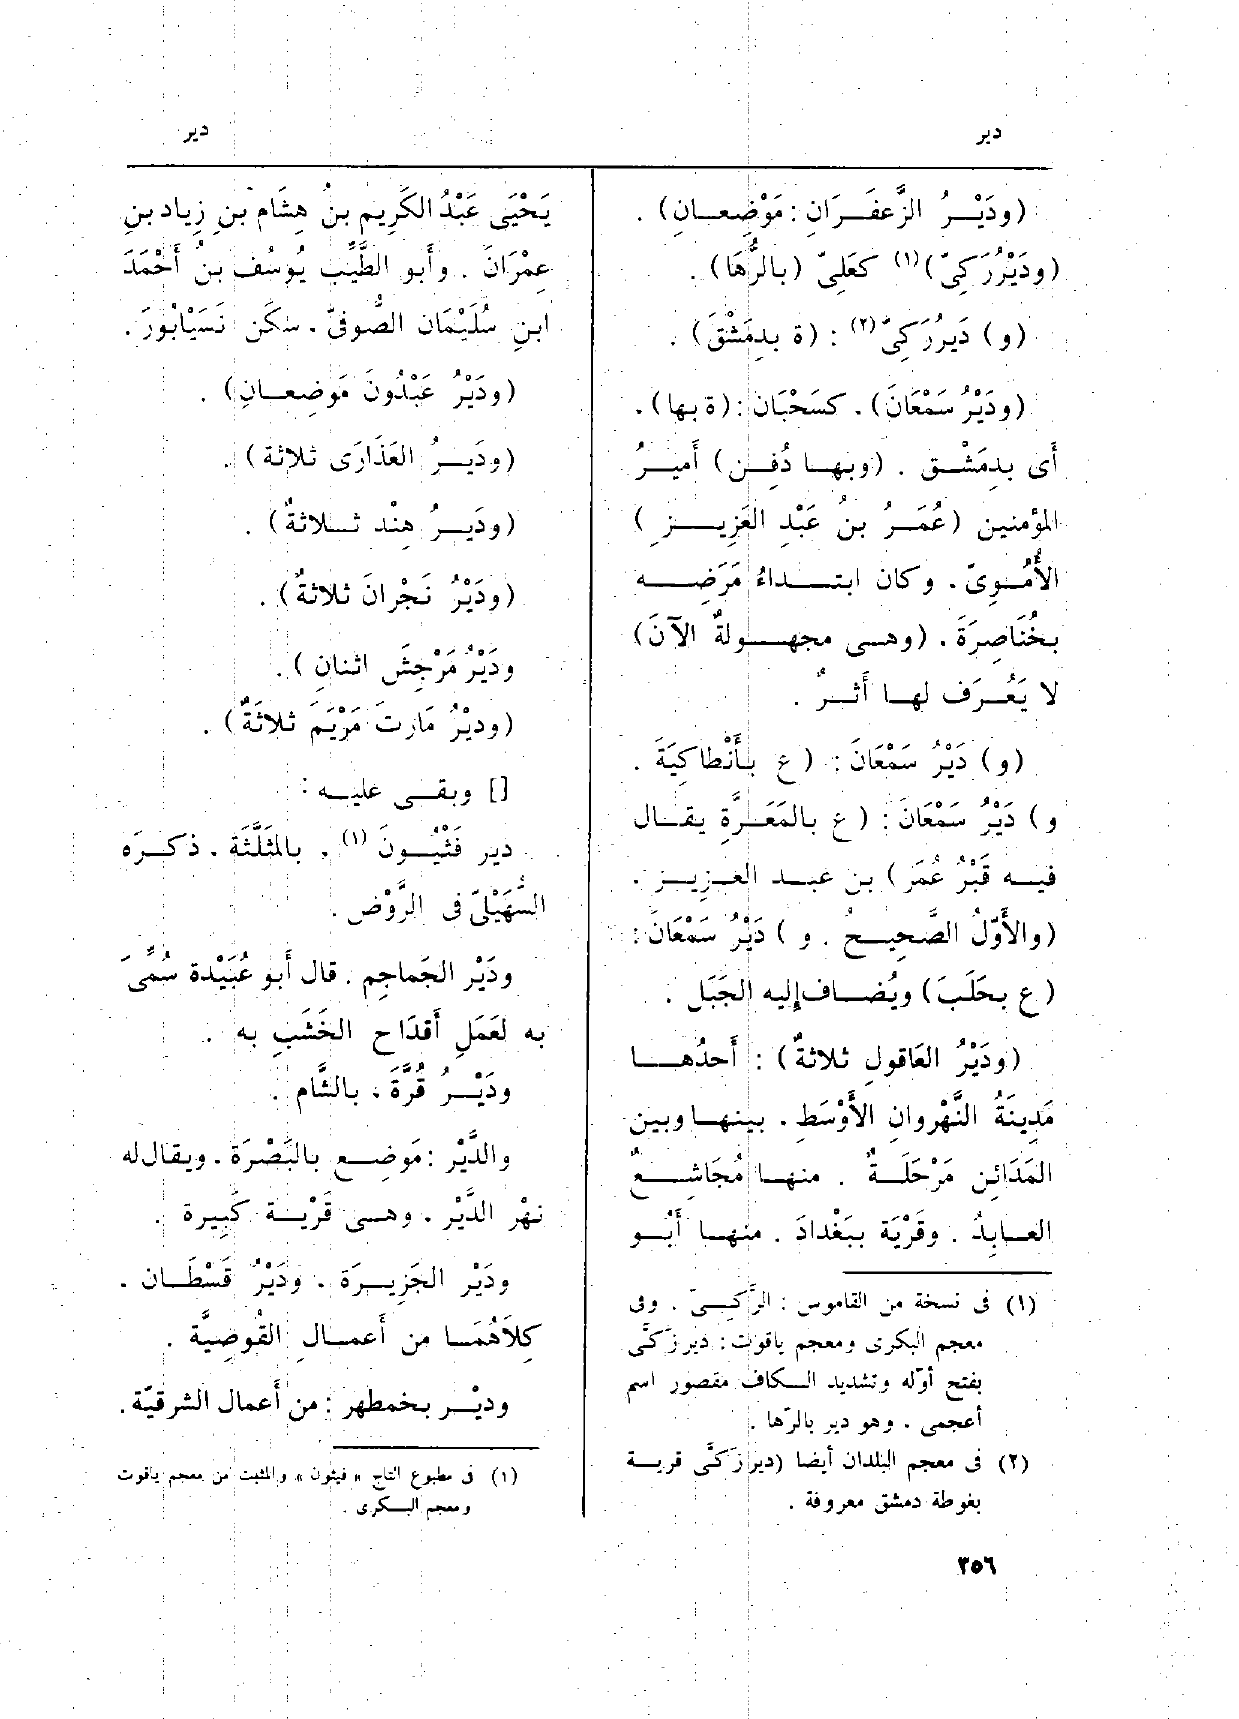 دير
دير
(ودَيْرُ الزَّعفَرَانِ : مَوْضِعانِ) .
(ودَيْرُزَكِىّ)(١) كعَلِىّ (بالرُّهَا) .
(و) دَيرُزَكِىّ(٢) : (ة بدِمَشْقَ) .
(ودَيْرُ سَمْعَانَ) . كسَحْبَان : (ة بها) .
أَى بدِمَشْق . (وبها دُفِن) أَميرُ
المؤمنين (عُمَرُ بنُ عَبْدِ العَزِيز )
الأُمَوِىّ . وكان ابتداءُ مَرَضِه
بخُنَاصِرَةَ . (وهى مجهولةٌ الآنَ)
لا يَعْرَف لها أَثرٌ .
(و) دَيْرُ سَمْعَانَ : ( ع بأَنْطاكِيَةَ .
و) دَيْرُ سَمْعَانَ : ( ع بالمَعَرَّة يقال
فيه قَبْرُ عُمَرَ ) بن عبد العزيز .
(والأَوّلُ الصَّحيحُ . و ) دَيْرُ سَمْعَانَ :
( ع بحَلَبَ) ويُضافإليه الجَبَل .
(ودَيْرُ العَاقول ثلاثةٌ) : أَحدُها
مَدِينَةُ النَّهْروانِ الأَوْسَطِ . بينها وبين
المَدَائن مَرْحَلَةٌ . منها مُجَاشِعٌ
العابِدُ . وقَرْيَة ببَغْدادَ . منها أَبُو
(١) فى نسخة من القاموس : الزَّكِىّ . وفى
معجم البكرى ومعجم ياقوت : ديرزكَّى
بفتح أوّله وتشديد الكاف مقصور اسم
أعجمى . وهو دير بالرّها .
(٢) فى معجم البلدان أيضا (ديرزَكَّى قرية
بغوطة دمشق معروفة .
يَحْيَى عَبْدُ الكَرِيم بنُ هِشَام بنِ زِياد بنِ
عِمْرَانَ . وأَبو الطَّيِّب يُوسُف بنُ أَحْمَدَ
ابنِ سُلَيْمَان الصُّوفِىّ . سكَن نَسَيْابُورَ .
(ودَيْرُ عَبْدُونَ مَوضِعانِ) .
(ودَيرُ العَذَارَى ثلاثة) .
(ودَيرُ هِنْد ثلاثةٌ) .
(ودَيْرُ نَجْرانَ ثلاثةٌ) .
ودَيْرُ مَرْجِسَ اثنانِ ) .
(وديْرُ مَارتَ مَرْيَم ثلاثَةٌ) .
[] وبقى عليه :
دير فَثْيُونَ(١) . بالمُثَلَّثَة . ذكره
السُّهَيْلىّ فى الرَّوْض .
ودَيْر الجَماجِم . قال أَبو عُبَيْدة سُمِّىَ
به لعَمَلِ أَقدَاح الخَشَبِ به .
ودَيْرُ قُرَّةَ ، بالشَّام .
والدَّيْر : مَوضِع بالبَصْرَة . ويقال له
نهْر الدَّيْر . وهى قَرْية كَبِيرة .
ودَيْر الجَزِيرَة . ودَيْرُ قَسْطَان .
كِلاَهُمَا من أَعمال القُوصِيَّة .
وديْر بخمطهر : من أَعمال الشرقيّة .
(١) فى مطبوع التاج « فيثون » والمثبت من معجم ياقوت
ومعجم البكرى .
٣٥٦